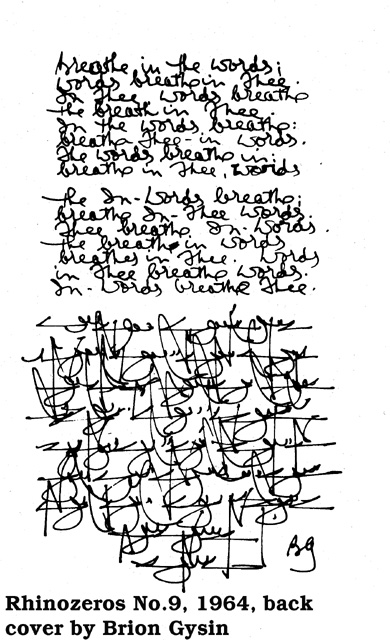 breathe in the words;
words breathe in Thee.
In Thee words breathe
the breath in Thee.
In the words breathe:
breathe Thee-in words.
The words breathe in;
breathe in Thee, words
the In-Words breathe;
breathe In-Thee words.
Thee breathe In-Words.
the breathe in words
breathes in Thee. Words
in Thee breathe words.
In-Words breathe Thee.
BG
Rhinozeros No.9, 1964, back
cover by Brion Gysin